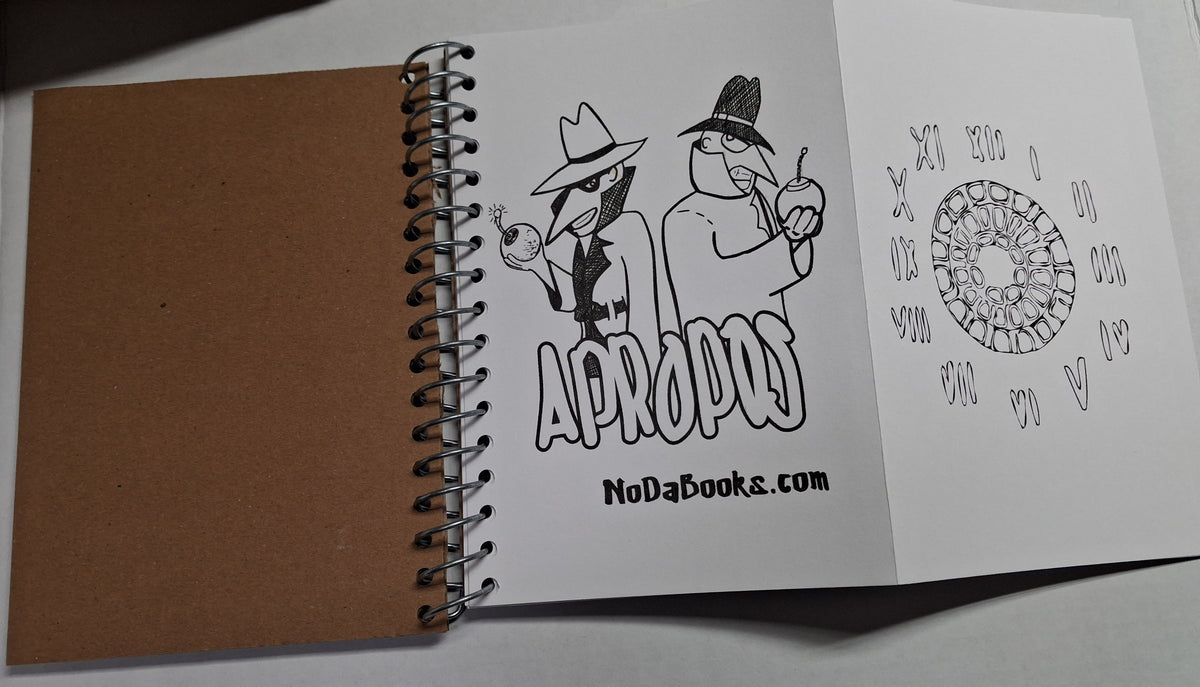 APROPOS
NoDaBooks.com
XII
I
II
III
IV
V
VI
VII
VIII
IX
X
XI